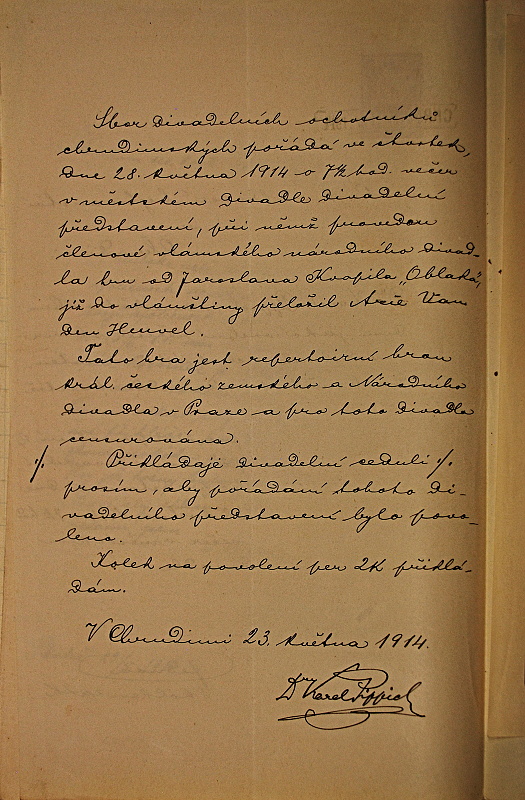 Sbor divadelních ochotníků
chrudimských pořádá ve čtvrtek,
dne 28. května 1914 o 7½ hod. večer
v městském divadle divadelní
představení, při němž provedou
členové vlámského národního divad-
la hru od Jaroslava Kvapila „Oblaka",
již do vlámštiny přeložil Arie Van
den Heuvel.
Tato hra jest repertoirní hrou
král. českého zemského a Národního
divadla v Praze a pro toto divadlo
censurována.
Přikládaje divadelní ceduli ·/.
·/.
prosím, aby pořádání tohoto di-
vadelního představení bylo povo-
leno.
Kolek na povolení per 2K přiklá-
dám.
V Chrudimi 23. května 1914.
Dr Karel Pippich